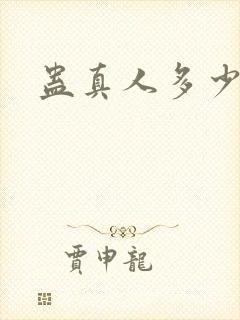 蛊真人多少
賈申龍